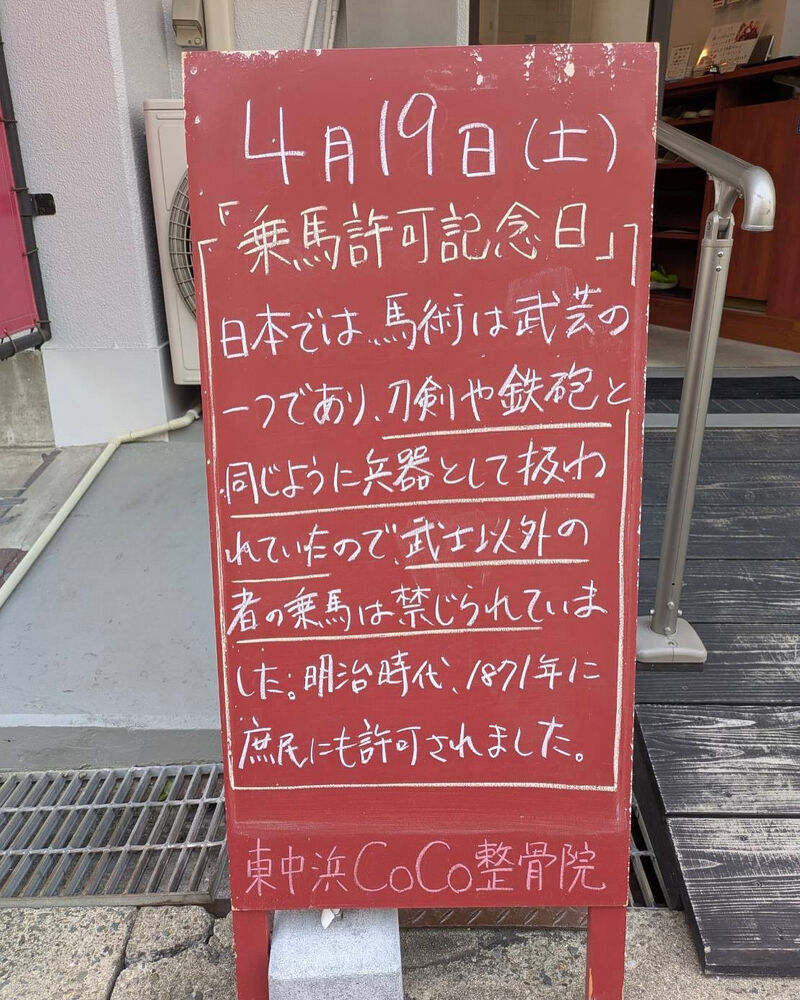 4月19日(土)
「乗馬許可記念日」
日本では、馬術は武芸の
一つであり、刀剣や鉄砲と
同じように兵器として扱わ
れていたので、武士以外の
者の乗馬は禁じられていま
した。明治時代、1871年に
庶民にも許可されました。
東中浜CoCo整骨院